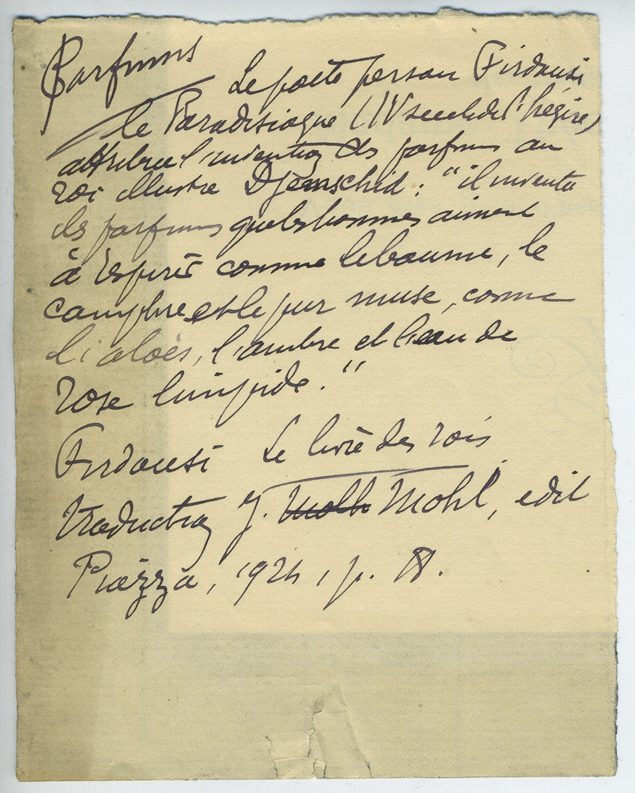 Parfums
Le poète persan Firdousi
le Paradisiaque (IV siecle de l'hégire)
attribue l'invention des parfums au
roi illustre Djemschid : "il inventa
des parfums que les hommes aiment
à respirer comme le baume, le
camphre et le pur musc, comme
l'aloès, l'ambre et l'eau de
rose limpide."
Firdousi Le livre des rois
traduction J. Mohl Mohl, edit
Piazza, 192, p. 18.